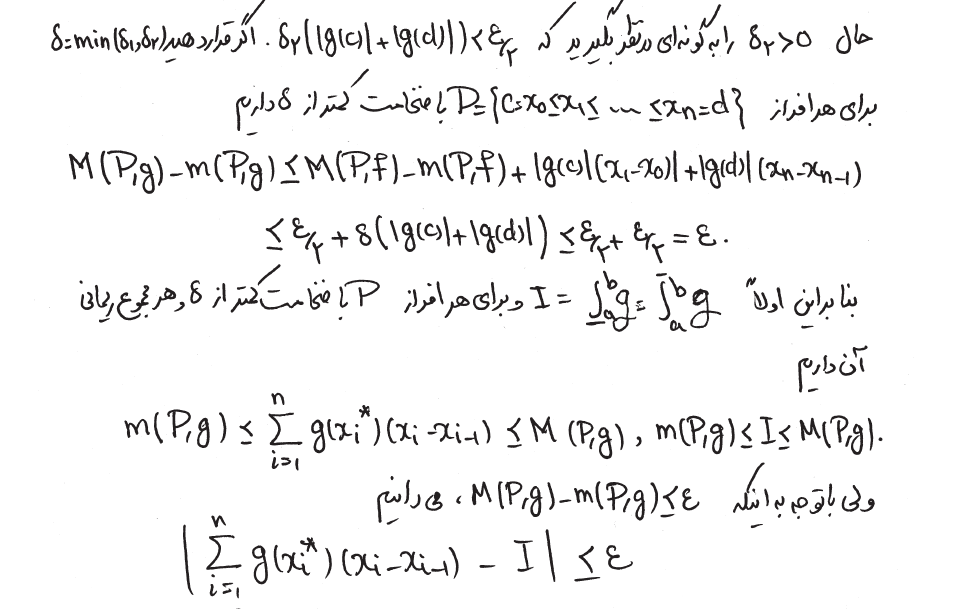 حال δ₂>0 را به گونه‌ای در نظر بگیرید که δ₂(|g(c)|+|g(d)|)<ε/۲ . اگر قرار دهید δ=min(δ₁,δ₂)
برای هر افراز P={c=x₀≤x₁≤ ... ≤xₙ=d} با ضخامت کمتر از δ داریم
M(P,g)-m(P,g)≤M(P,f)-m(P,f)+|g(c)|(x₁-x₀)|+|g(d)|(xₙ-xₙ₋₁)
≤ε/۲+δ(|g(c)|+|g(d)|)≤ε/۲+ε/۲=ε.
بنابراین اولاً I = ∫̲ₐᵇg = ∫̄ₐᵇg و برای هر افراز P با ضخامت کمتر از δ و هر مجموع ریمانی
آن داریم
m(P,g)≤∑ᵢ₌₁ⁿ g(xᵢ*)(xᵢ-xᵢ₋₁)≤M(P,g), m(P,g)≤I≤M(P,g).
ولی با توجه به اینکه M(P,g)-m(P,g)≤ε ، می دانیم
|∑ᵢ₌₁ⁿ g(xᵢ*)(xᵢ-xᵢ₋₁) - I|≤ε